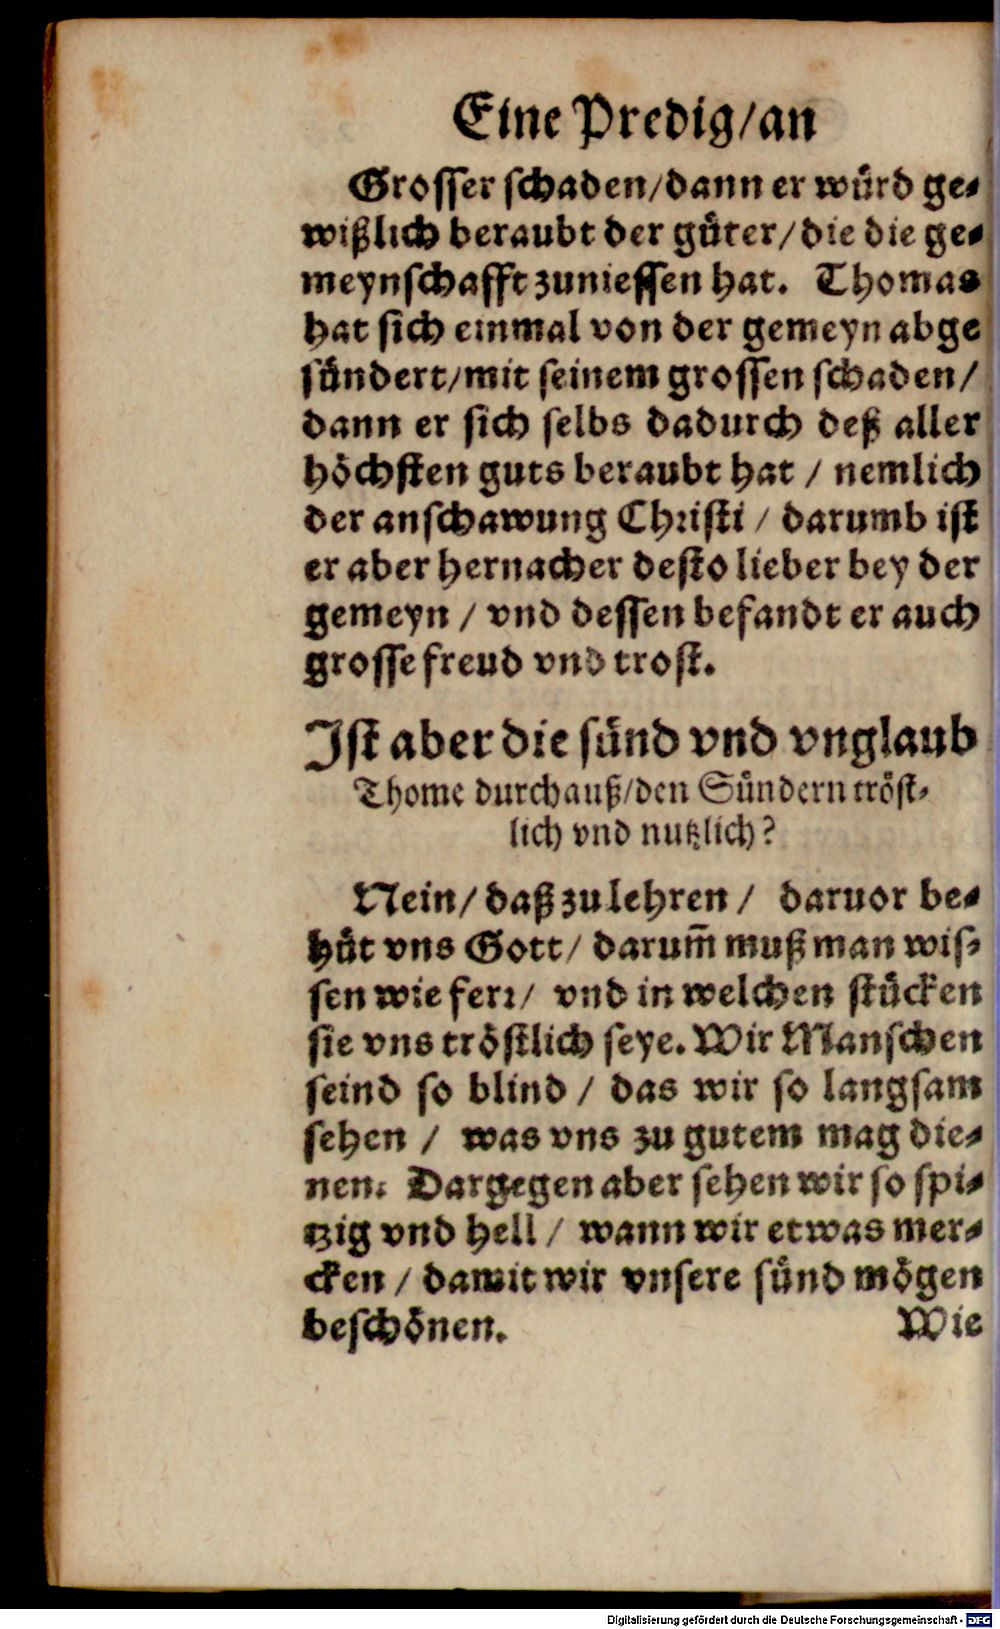 Eine Predig/an
Grosser schaden/dann er wuͤrd ge⸗
wißlich beraubt der guͤter/die die ge⸗
meynschafft zuniessen hat. Thomas
hat sich einmal von der gemeyn abge
suͤndert/mit seinem grossen schaden/
dann er sich selbs dadurch deß aller
hoͤchsten guts beraubt hat / nemlich
der anschawung Christi / darumb ist
er aber hernacher desto lieber bey der
gemeyn / vnd dessen befandt er auch
grosse freud vnd trost.
Ist aber die suͤnd vnd vnglaub
Thome durchauß/den Suͤndern troͤst⸗
lich vnd nutzlich?
Nein/ daß zu lehren / daruor be⸗
huͤt vns Gott/ darum̄ muß man wis⸗
sen wie ferr/ vnd in welchen stuͤcken
sie vns troͤstlich seye. Wir Manschen
seind so blind / das wir so langsam
sehen / was vns zu gutem mag die⸗
nen. Dargegen aber sehen wir so spi⸗
tzig vnd hell / wann wir etwas mer⸗
cken / damit wir vnsere suͤnd moͤgen
beschoͤnen. Wie
Digitalisierung gefördert durch die Deutsche Forschungsgemeinschaft - DFG